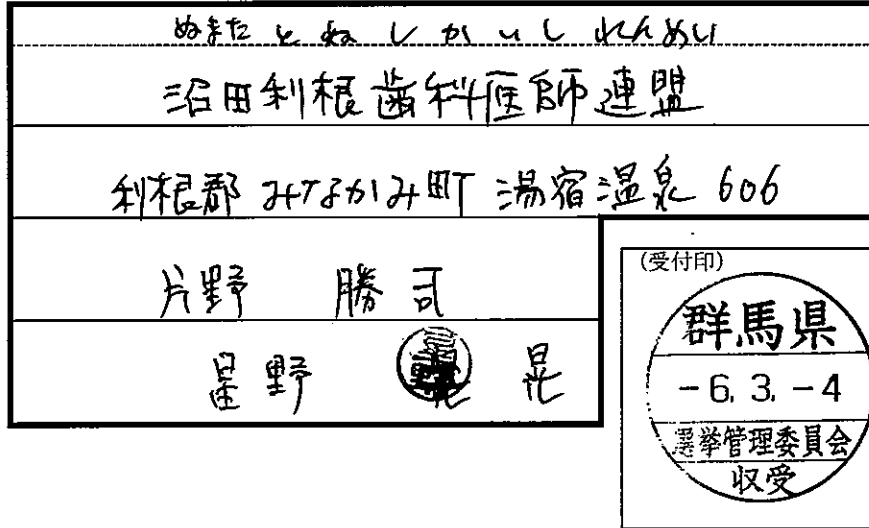 ぬまた とね しかいし れんめい
沼田利根歯科医師連盟
利根郡 みなかみ町 湯宿温泉 606
片野 勝司
星野 晃
(受付印)
群馬県
-6.3.-4
選挙管理委員会
収受